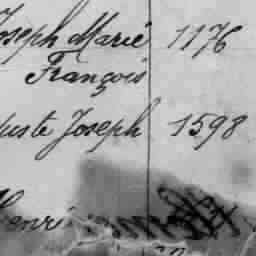 Joseph Marie 1176
François
Joseph 1598
Henri